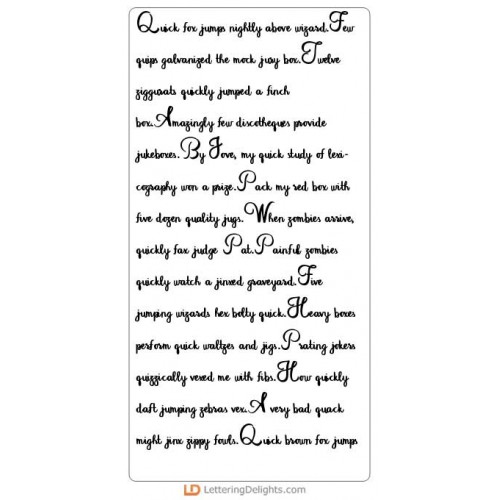 Quick fox jumps nightly above wizard.Few
quips galvanized the mock jury box.Twelve
ziggurats quickly jumped a finch
box.Amazingly few discotheques provide
jukeboxes.By Jove, my quick study of lexi-
cography won a prize.Pack my red box with
five dozen quality jugs.When zombies arrive,
quickly fax judge Pat.Painful zombies
quickly watch a jinxed graveyard.Five
jumping wizards hex bolty quick.Heavy boxes
perform quick waltzes and jigs.Prating jokers
quizzically vexed me with fibs.How quickly
daft jumping zebras vex.A very bad quack
might jinx zippy fowls.Quick brown fox jumps
LD LetteringDelights.com